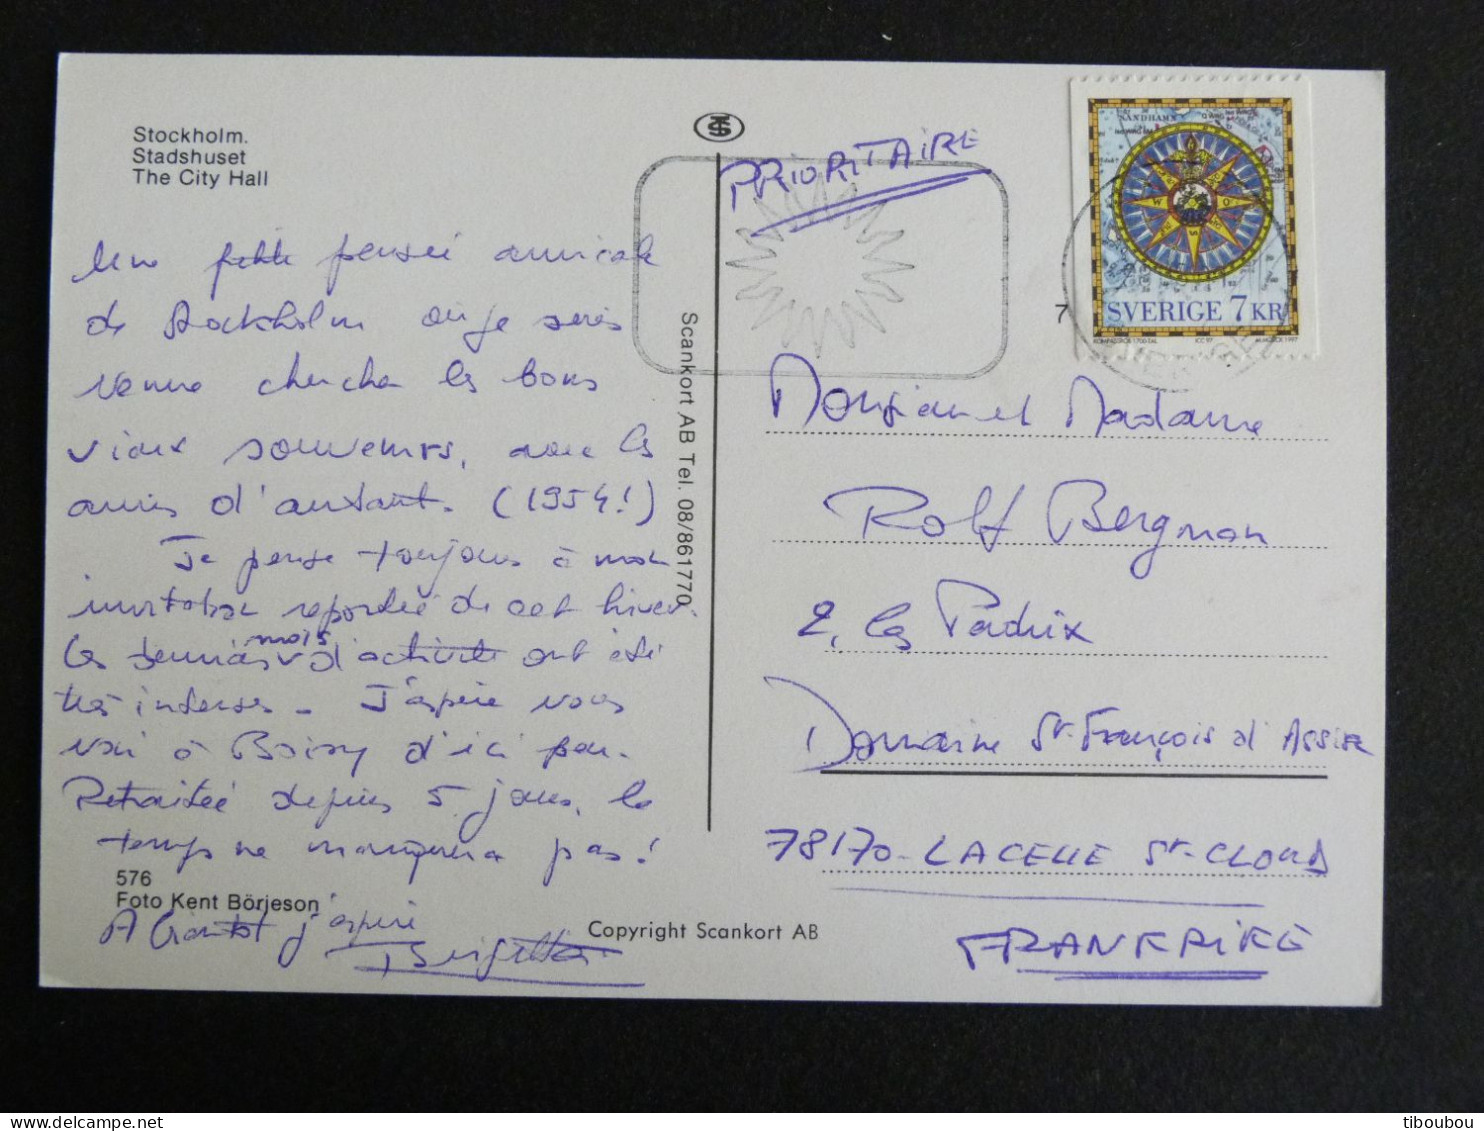 Stockholm.
Stadshuset
The City Hall
Une petite pensée amicale
de Stockholm où je suis
venue chercher les bons
vieux souvenirs, avec les
amis d'antant. (1954!)
Je pense toujours à mon
invitation reportée de cet hiver.
Les derniers mois d'activité ont été
très intenses - J'espère vous
voir à Boissy d'ici peu.
Retraitée depuis 5 jours, le
temps ne manquera pas!
576
Foto Kent Börjeson
A bientôt j'espère
Birgitta
Copyright Scankort AB
Scankort AB Tel. 08/861770
PRIORITAIRE
SANDHAMN
SVERIGE 7 KR
7
Monsieur et Madame
Rolf Bergman
2, les Padrix
Domaine St-François d'Assise
78170 - LACELLE St-CLOUD
FRANKRIKE
tiboubou